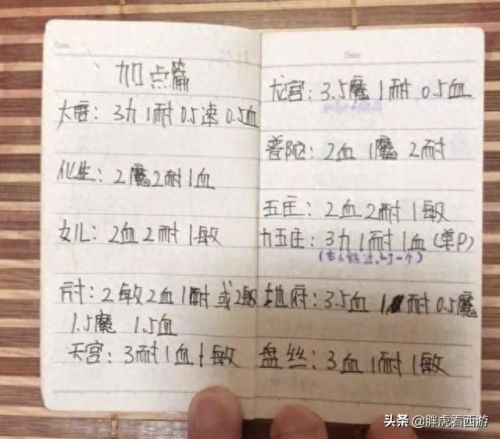 Date:
加点篇
大唐：3力1耐0.5速0.5血
化生：2魔2耐1血
女儿：2血2耐1敏
方寸：2敏2血1耐或2敏
1.5魔 1.5血
天宫：3耐1血1敏
Date:
龙宫：3.5魔1耐0.5血
普陀：2血1魔2耐
五庄：2血2耐1敏
力五庄：3力1耐1血(单P)
地府：3.5血1耐0.5魔
盘丝：3血1耐1敏
头条 @胖虎看西游